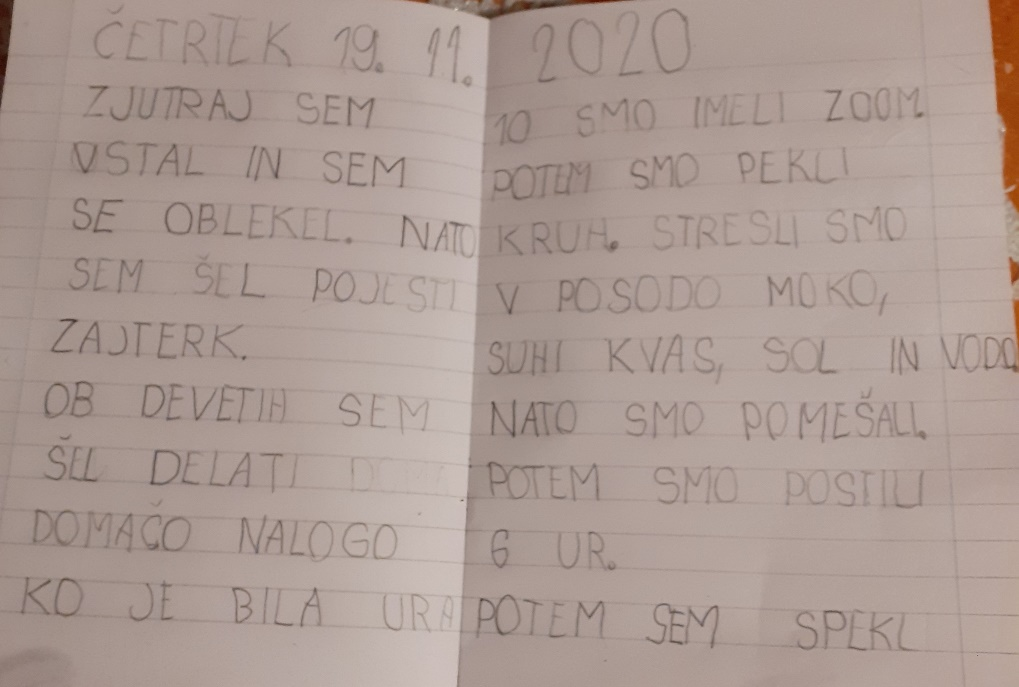 ČETRTEK 19. 11. 2020
ZJUTRAJ SEM
VSTAL IN SEM
SE OBLEKEL. NATO
SEM ŠEL POJESTI
ZAJTERK.
OB DEVETIH SEM
ŠEL DELATI
DOMAČO NALOGO
KO JE BILA URA
10 SMO IMELI ZOOM.
POTEM SMO PEKLI
KRUH. STRESLI SMO
V POSODO MOKO,
SUHI KVAS, SOL IN VODO
NATO SMO POMEŠALI.
POTEM SMO POSTILI
6 UR.
POTEM SEM SPEKL